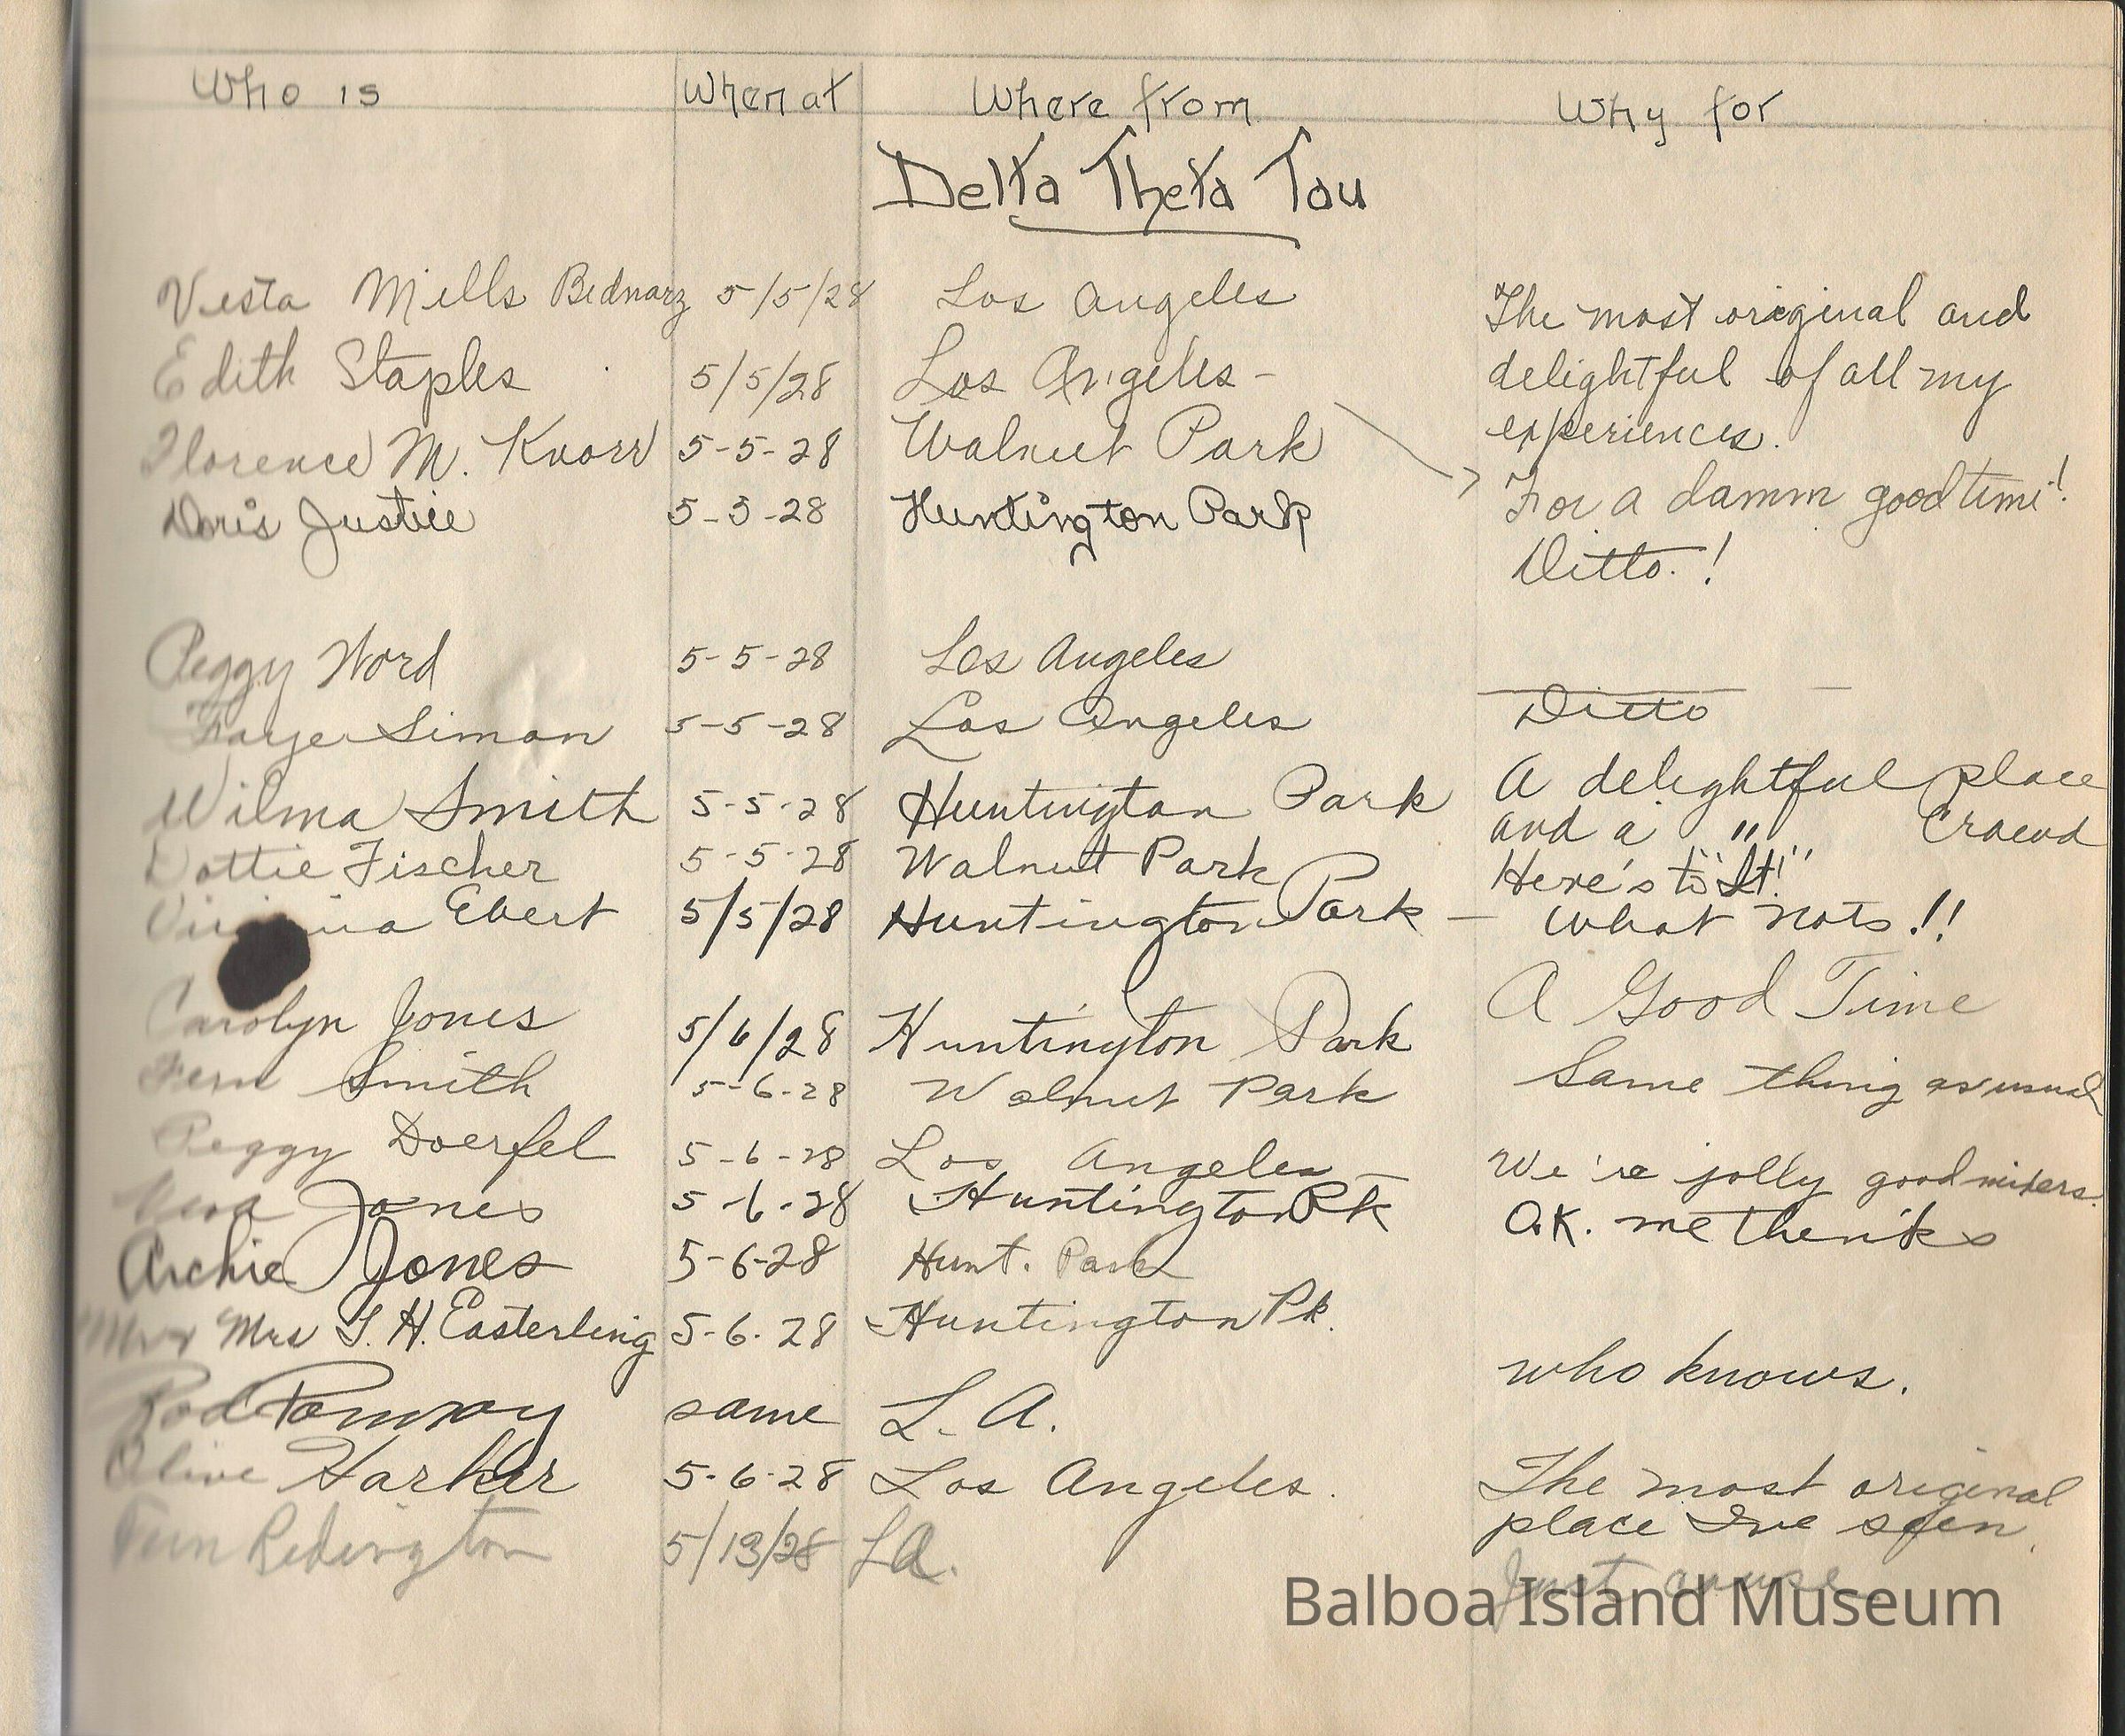 Who is When at Where from Why for
Delta Theta Tau
Vesta Mills Bednarz 5/5/28 Los Angeles The most original and
delightful of all my
experiences.
Edith Staples 5/5/28 Los Angeles -
Florence M. Knorr 5-5-28 Walnut Park For a damm good time!
Doris Justice 5-5-28 Huntington Park Ditto.!
Peggy Word 5-5-28 Los Angeles
Faye Simon 5-5-28 Los Angeles Ditto
Wilma Smith 5-5-28 Huntington Park A delightful place
and a " Crowd
Dottie Fischer 5-5-28 Walnut Park Here's to "It!"
Ebert 5/5/28 Huntington Park - What nots!!
Carolyn Jones 5/6/28 Huntington Park A Good Time
Fern Smith 5-6-28 Walnut Park Same thing as usual
Peggy Doerfel 5-6-28 Los Angeles - We're jolly good mixers.
Jones 5-6-28 Huntington Pk O.K. me thenks
Archie Jones 5-6-28 Hunt. Park
Mrs H. Easterling 5-6-28 Huntington Pk.
Rod same L.A. who knows.
Olive Harker 5-6-28 Los Angeles. The most original
place I've seen.
Redington 5/13/28 LA. Just
Balboa Island Museum